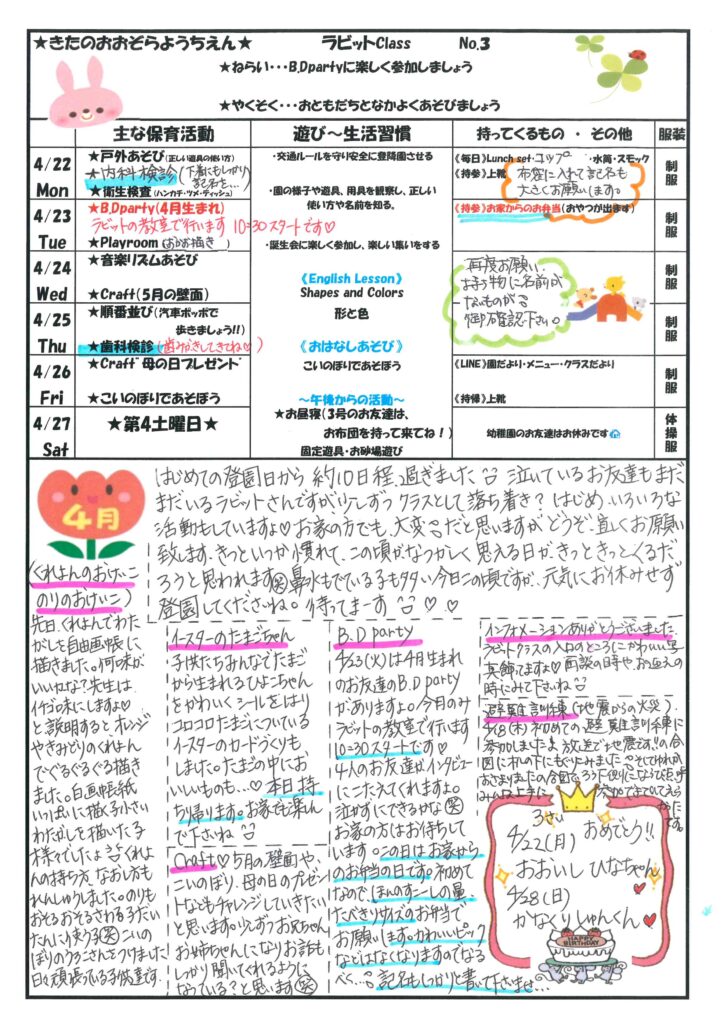 ★きたのおおぞらようちえん★ ラビットClass No.3
★ねらい・・・B.Dpartyに楽しく参加しましょう
★やくそく・・・おともだちとなかよくあそびましょう
主な保育活動 遊び～生活習慣 持ってくるもの ・ その他 服装
4/22 Mon
★戸外あそび(正しい遊具の使い方)
★内科検診(下着にもしっかり記名を…)
★衛生検査(ハンカチ・ツメ・ティッシュ)
・交通ルールを守り安全に登降園させる
・園の様子や遊具、用具を観察し、正しい
使い方や名前を知る。
《毎日》Lunch set・コップ・水筒・スモック
《持参》上靴 布袋に入れて記名も
大きくお願いします。
制服
4/23 Tue
★B.Dparty(4月生まれ)
ラビットの教室で行います 10:30スタートです♡
★Playroom(お絵描き)
・誕生会に楽しく参加し、楽しい集いをする
《持参》お家からのお弁当(おやつが出ます)
制服
4/24 Wed
★音楽リズムあそび
★Craft(5月の壁面)
《English Lesson》
Shapes and Colors
再度お願い。
持ち物に名前が
ないものが
御確認下さい。
制服
4/25 Thu
★順番並び(汽車ポッポで
歩きましょう!!)
★歯科検診(歯みがきしてきてね♡)
形と色
《おはなしあそび》
制服
4/26 Fri
★Craft"母の日プレゼント"
★こいのぼりであそぼう
こいのぼりであそぼう
～午後からの活動～
《LINE》園だより・メニュー・クラスだより
《持帰》上靴
制服
4/27 Sat
★第4土曜日★
★お昼寝(3号のお友達は、
お布団を持って来てね!)
固定遊具・お砂場遊び
幼稚園のお友達はお休みです
体操服
4月
はじめての登園日から約10日程、過ぎました 泣いているお友達もまだ
まだいるラビットさんですが、少しずつクラスとして落ち着き?はじめ、いろいろな
活動もしていますよ♡お家の方でも、大変だと思いますが、どうぞ、宜しくお願い
致します。きっといつか慣れて、この頃がなつかしく思える日が、きっときっとくるだ
ろうと思われます(笑)鼻水もでている子も多い今日この頃ですが、元気にお休みせず
登園してくださいね。待ってまーす♡♡
くれよんのおけいこ
のりのおけいこ
先日、くれよんでわた
がしを自由画帳に
描きました。何味が
いいかな?先生は
イチゴ味にしますよ♡
と説明すると、オレンジ
やきみどりのくれよん
でぐるぐるぐる描き
ました。自画帳紙
いっぱいに描く子、小さい
わたがしを描いた子
様々でしたよ くれよ
んの持ち方、なおし方も
れんしゅうしました。のりも
おそるおそるさわる子、だい
たんに使う子(笑)こいの
ぼりのうろこさんをつけました
日々頑張っている子供達です。
イースターのたまごちゃん
子供たちみんなでたまご
から生まれるひよこちゃん
をかわいくシールをはり
コロコロたまごについている
イースターのカードづくりも
しました。たまごの中にお
いしいものも…♡本日持
ち帰ります。お家でも楽しん
で下さいね
Craft♡5月の壁面や、
こいのぼり、母の日のプレゼン
トなどもチャレンジしていきたい
と思います。少しずつお兄ちゃん
お姉ちゃんになりお話も
しっかり聞いてくれるように
なっている?と思います(笑)
B.D party
4/23(火)は4月生まれ
のお友達のB.D party
がありますよ。今月のみ
ラビットの教室で行います
10:30スタートです♡
4人のお友達がインタビュー
にこたえてくれますよ。
泣かずにできるかな(笑)
お家の方はお待ちして
います。この日はお家から
のお弁当の日です。初めて
なので、ほんのすこしの量、
たべきりサイズのお弁当で
お願いします。かわいいピック
などはなくなりますのでなる
べく…記名もしっかりと書いて下さいませ…
インフォメーションありがとうございました
ラビットクラスの入口のところにかわいい写
真飾ってますよ♡面談の時やお迎えの
時にみて下さいね
避難訓練(地震からの火災)
4/18(木)初めての避難訓練に
参加しましたよ 放送で「地震です!!」の合
図に机の下にもぐりみました
3さい
4/22(月) おめでとう!!
おおいし ひなちゃん
4/28(日)
かなくりしゅんくん♥
HAPPY BIRTHDAY